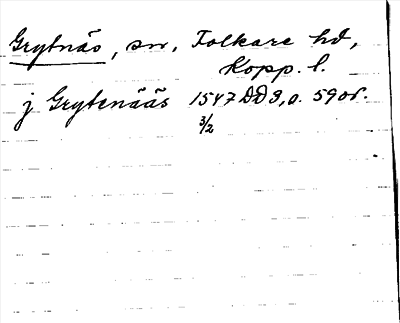 Grytnäs, sn, Folkare hd,
Kopp. l.
j Grytenääs 1547 DD 3, o. 59 or.
3/2